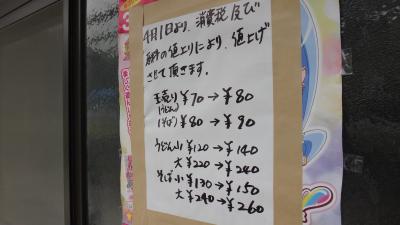 4月1日より、消費税及び
原料の値上りにより、値上げ
させて頂きます。
玉売り ¥70→¥80
(うどん)
(そば) ¥80→¥90
うどん小 ¥120→¥140
大 ¥220→¥240
そば小 ¥130→¥150
大 ¥240→¥260